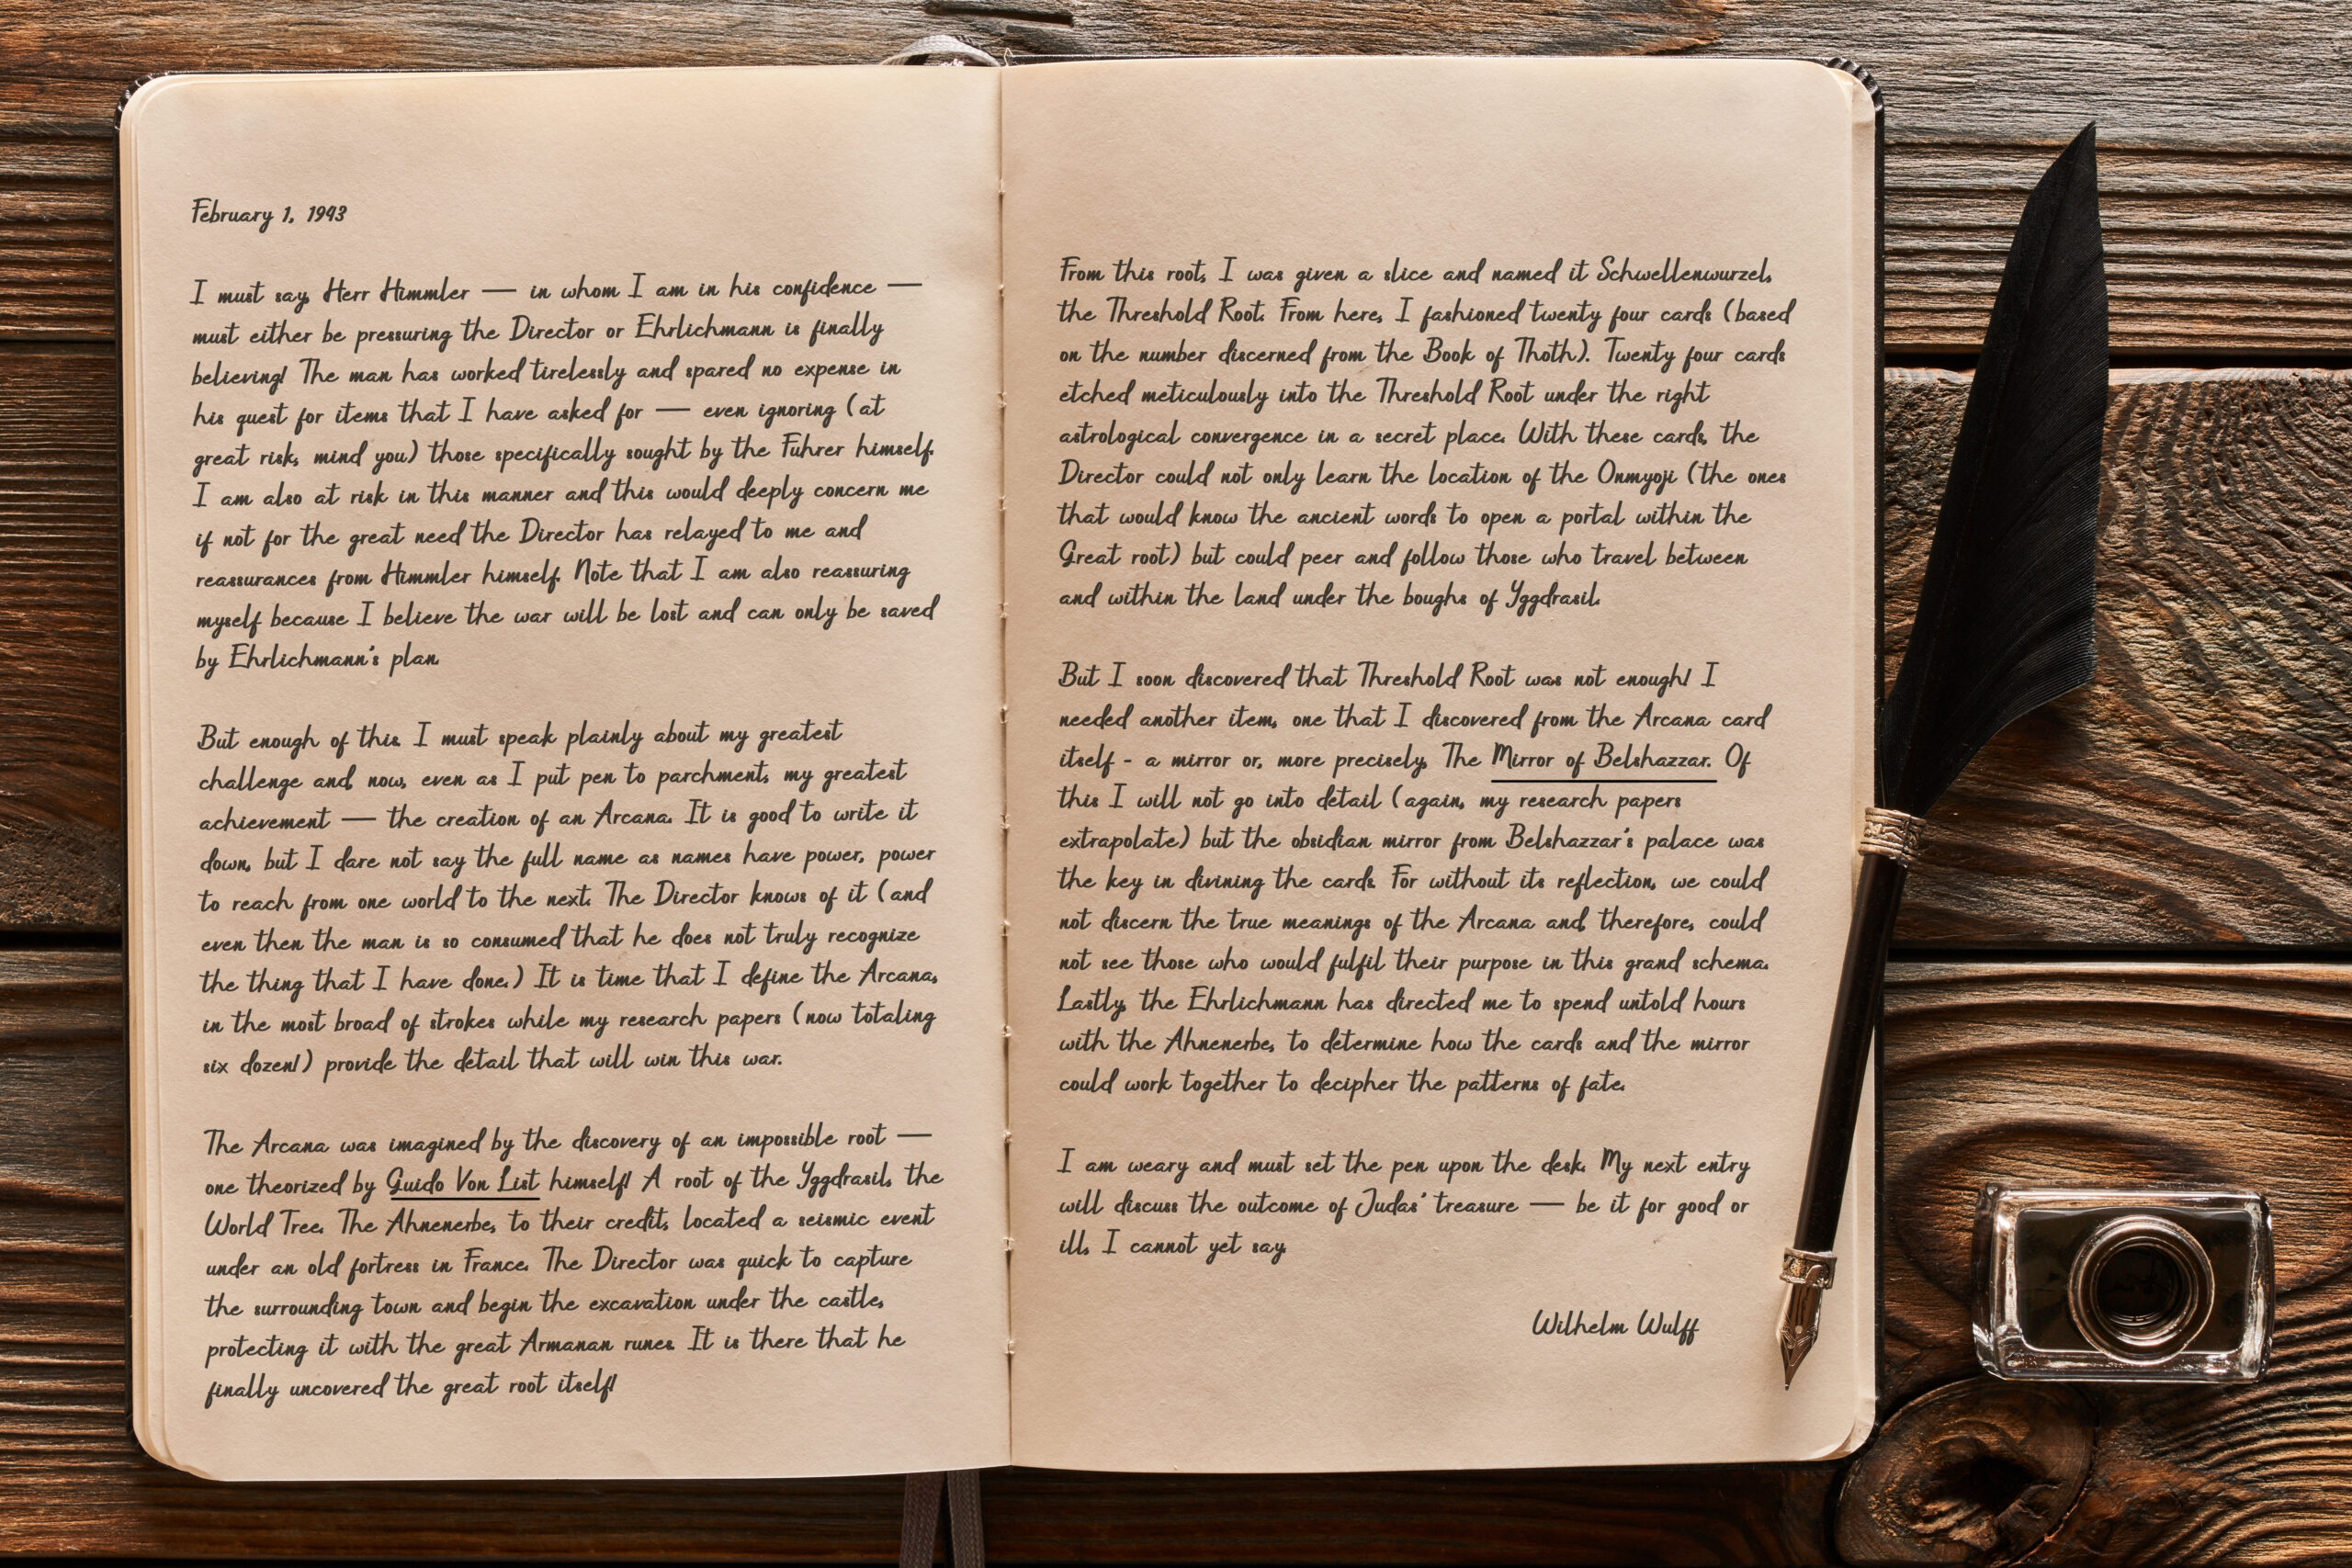 February 1, 1943
I must say, Herr Himmler — in whom I am in his confidence —
must either be pressuring the Director or Ehrlichmann is finally
believing! The man has worked tirelessly and spared no expense in
his quest for items that I have asked for — even ignoring (at
great risk, mind you) those specifically sought by the Fuhrer himself.
I am also at risk in this manner and this would deeply concern me
if not for the great need the Director has relayed to me and
reassurances from Himmler himself. Note that I am also reassuring
myself because I believe the war will be lost and can only be saved
by Ehrlichmann's plan.
But enough of this. I must speak plainly about my greatest
challenge and, now, even as I put pen to parchment, my greatest
achievement — the creation of an Arcana. It is good to write it
down, but I dare not say the full name as names have power, power
to reach from one world to the next. The Director knows of it (and
even then the man is so consumed that he does not truly recognize
the thing that I have done.) It is time that I define the Arcana,
in the most broad of strokes while my research papers (now totaling
six dozen!) provide the detail that will win this war.
The Arcana was imagined by the discovery of an impossible root —
one theorized by Guido Von List himself! A root of the Yggdrasil, the
World Tree. The Ahnenerbe, to their credit, located a seismic event
under an old fortress in France. The Director was quick to capture
the surrounding town and begin the excavation under the castle,
protecting it with the great Armanan runes. It is there that he
finally uncovered the great root itself!
From this root, I was given a slice and named it Schwellenwurzel,
the Threshold Root. From here, I fashioned twenty four cards (based
on the number discerned from the Book of Thoth). Twenty four cards
etched meticulously into the Threshold Root under the right
astrological convergence in a secret place. With these cards, the
Director could not only learn the location of the Onmyoji (the ones
that would know the ancient words to open a portal within the
Great root) but could peer and follow those who travel between
and within the land under the boughs of Yggdrasil.
But I soon discovered that Threshold Root was not enough! I
needed another item, one that I discovered from the Arcana card
itself - a mirror or, more precisely, The Mirror of Belshazzar. Of
this I will not go into detail (again, my research papers
extrapolate) but the obsidian mirror from Belshazzar's palace was
the key in divining the cards. For without its reflection, we could
not discern the true meanings of the Arcana and, therefore, could
not see those who would fulfil their purpose in this grand schema.
Lastly, the Ehrlichmann has directed me to spend untold hours
with the Ahnenerbe, to determine how the cards and the mirror
could work together to decipher the patterns of fate.
I am weary and must set the pen upon the desk. My next entry
will discuss the outcome of Judas' treasure — be it for good or
ill, I cannot yet say.
Wilhelm Wulff